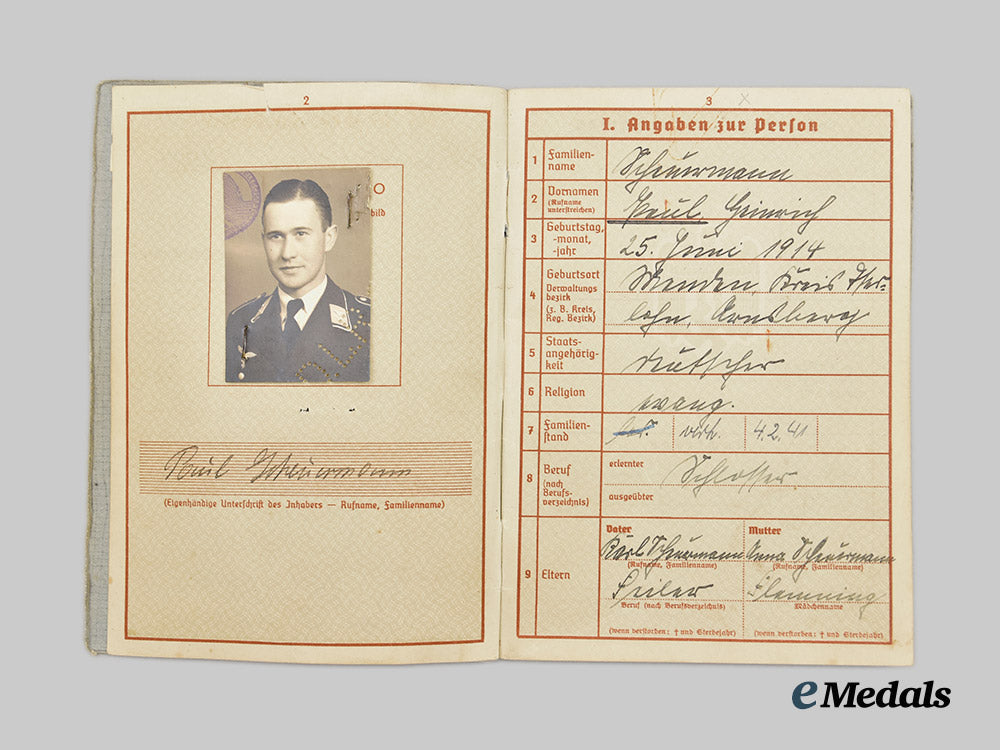 2
O
bild
Paul Scheuermann
(Eigenhändige Unterschrift des Inhabers — Rufname, Familienname)
3 x
I. Angaben zur Person
1 Familien-
name
Scheuermann
2 Vornamen
(Rufname
unterstreichen)
Paul Heinrich
3 Geburtstag,
-monat,
-jahr
25. Juni 1914
4 Geburtsort
Verwaltungs
bezirk
(z. B. Kreis,
Reg. Bezirk)
Menden, Kreis Iser-
lohn, Arnsberg
5 Staats-
angehörig-
keit
Deutscher
6 Religion
evang.
7 Familien-
stand
led. verh. 4.2.41
8 Beruf
(nach
Berufs-
verzeichnis)
erlernter Schlosser
ausgeübter
9 Eltern
Vater
Karl Scheuermann
(Rufname, Familienname)
Seiler
Beruf (nach Berufsverzeichnis)
(wenn verstorben: † und Sterbejahr)
Mutter
Anna Scheuermann
(Rufname, Familienname)
Flemming
Mädchenname
(wenn verstorben: † und Sterbejahr)
eMedals